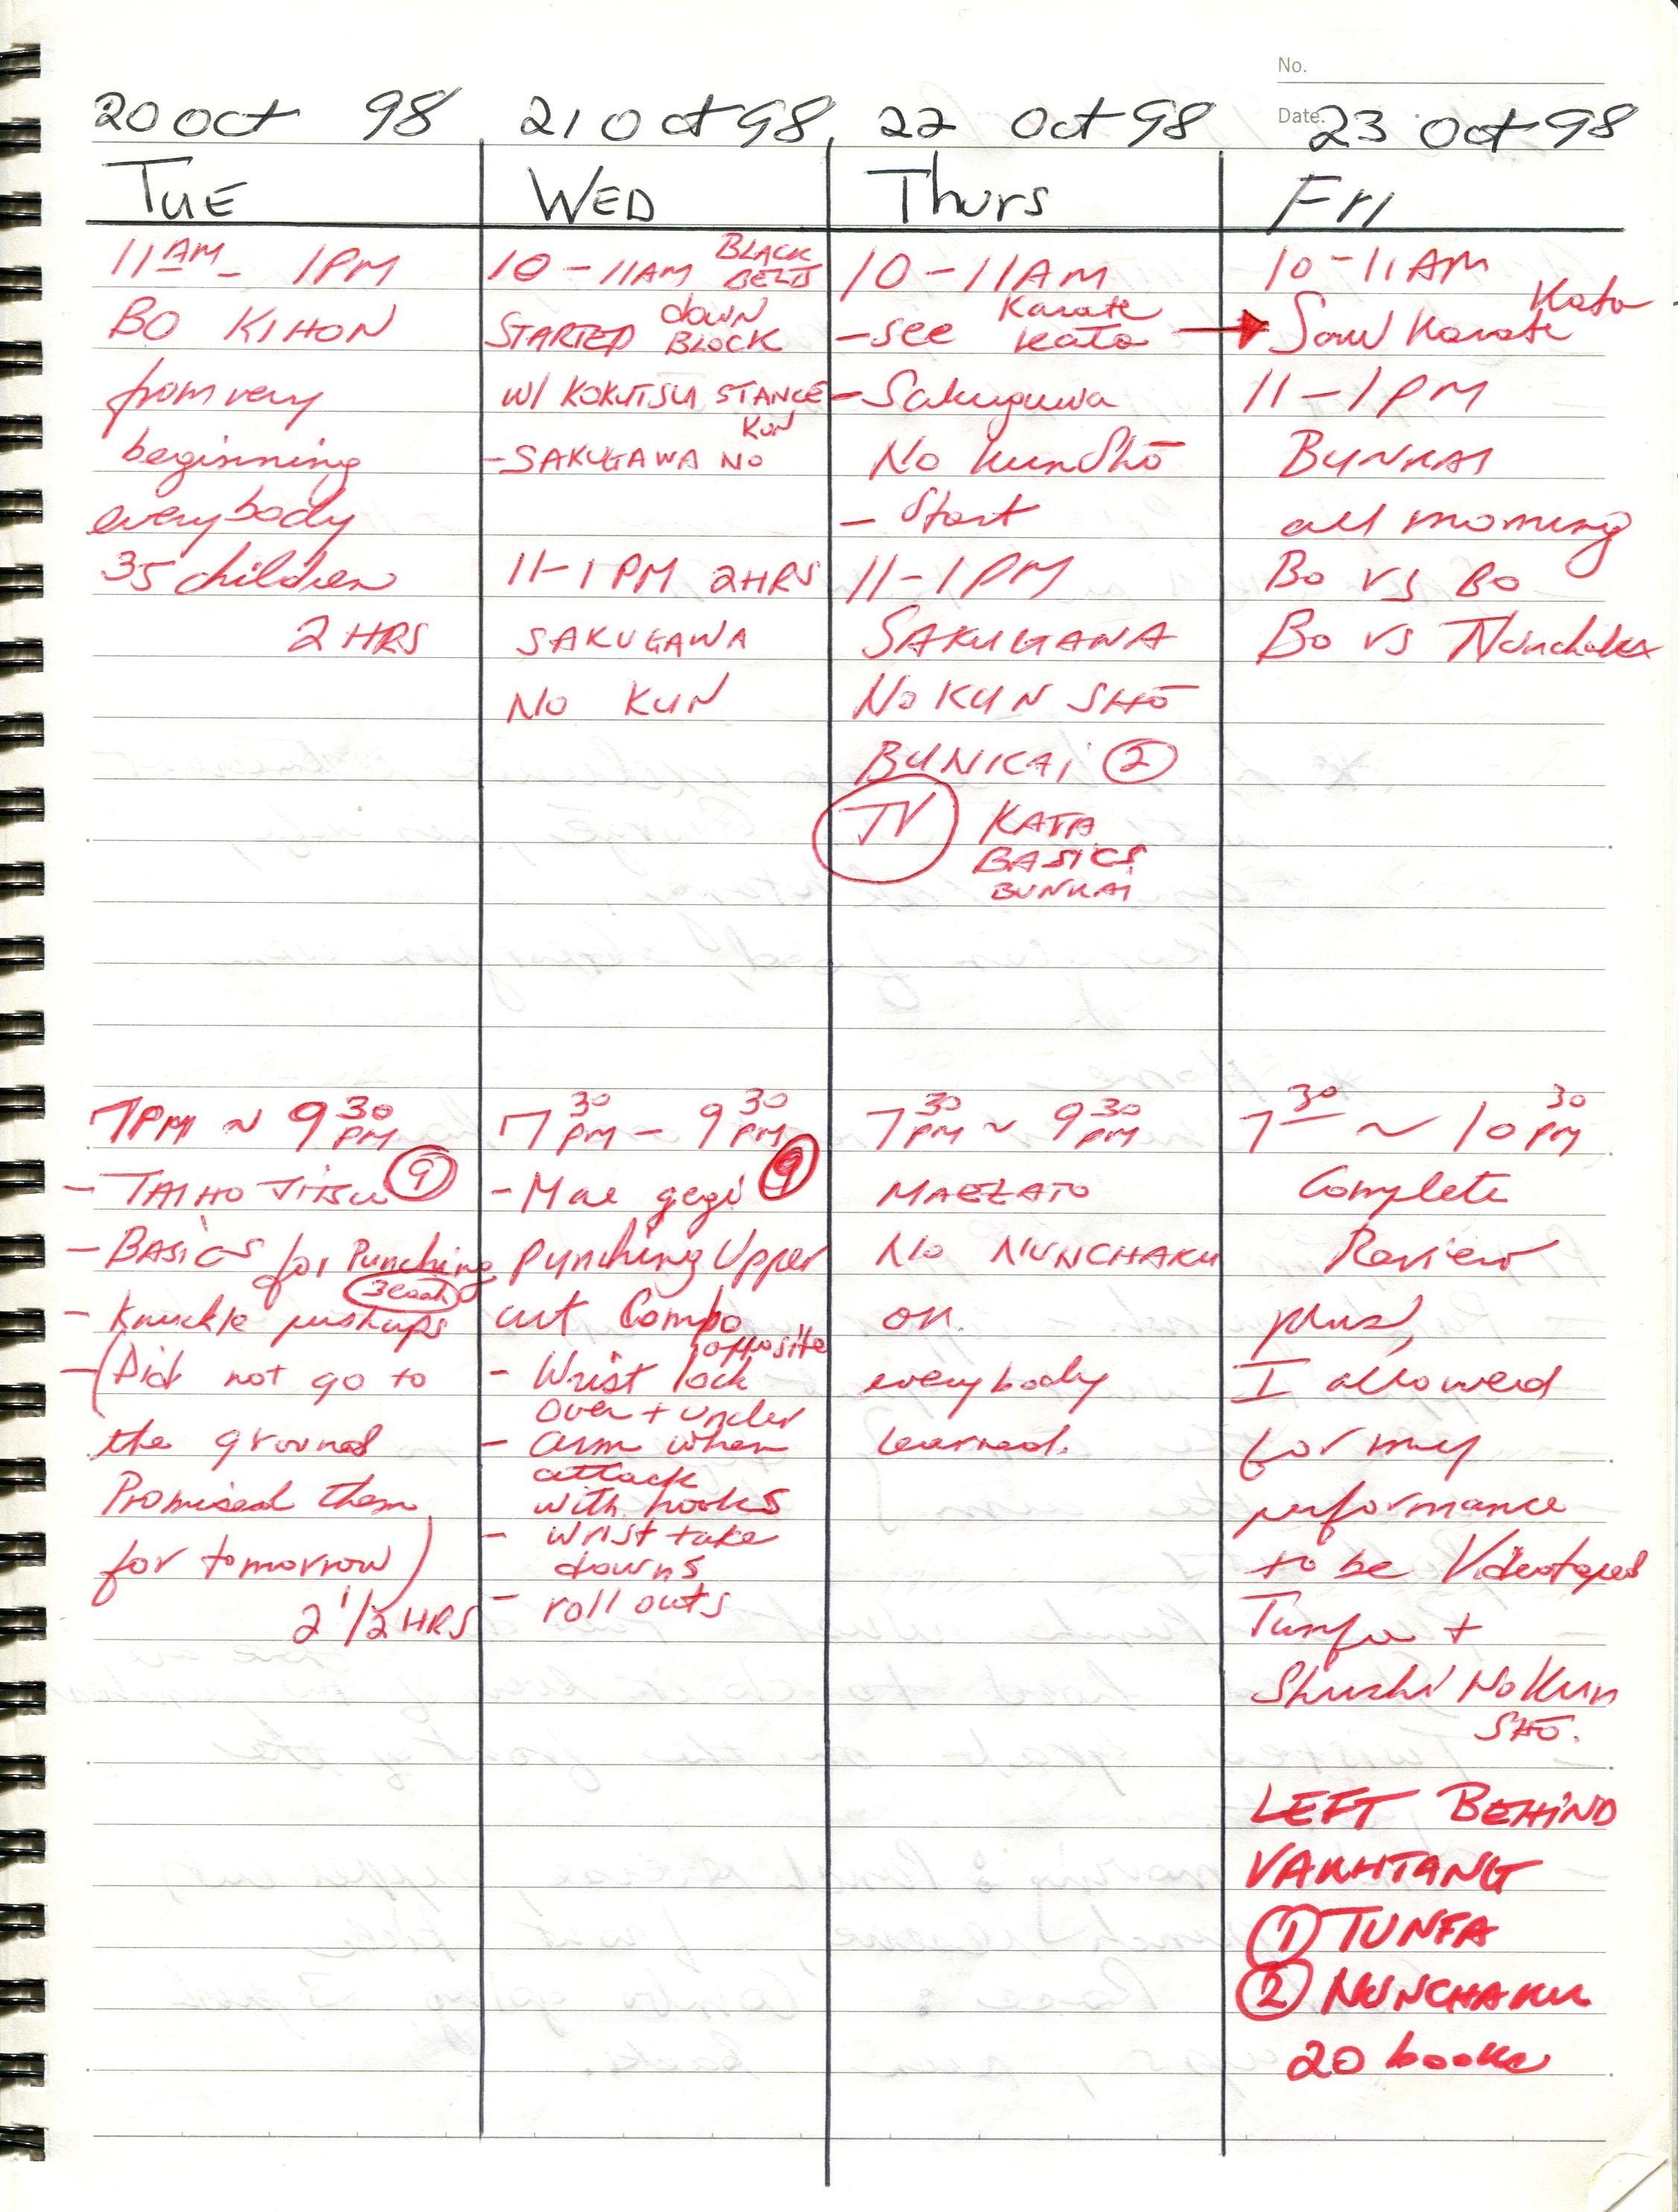 No.
Date.
20 Oct 98
TUE
11AM - 1PM
BO KIHON
from very
beginning
everybody
35 children
2 HRS
7PM ~ 9 30 PM
- TAIHO JITSU (9)
- BASICS for Punching
3 each
- Knuckle pushups
- (Did not go to
the ground
Promised them
for tomorrow)
2 1/2 HRS
21 Oct 98
WED
10 - 11AM BLACK BELTS
STARTED down BLOCK
W/ KOKUTSU STANCE
- SAKUGAWA NO KUN
11-1PM 2HRS
SAKUGAWA
NO KUN
7 30 PM - 9 30 PM
- Mae gegi (9)
punching Upper
cut Combo
opposite
- Wrist lock
over + under
- arm when
attack
with hooks
- wrist take
downs
- roll outs
22 Oct 98
Thurs
10 - 11AM
- see Karate Kata
- Sakugawa
No Kun Shō
- Start
11-1PM
SAKUGAWA
NO KUN SHŌ
BUNKAI (2)
TV KATA
BASICS
BUNKAI
7 30 PM ~ 9 30 PM
MAEZATO
No NUNCHAKU
on
everybody
learned.
23 Oct 98
Fri
10-11AM
Saw Karate Kata
11-1PM
BUNKAI
all morning
Bo vs Bo
Bo vs Nunchaku
7 30 ~ 10 30 PM
Complete
Review
plus,
I allowed
for my
performance
to be Videotaped
Tunfa +
Shushi No Kun
SHŌ.
LEFT BEHIND
VAKHTANG
(1) TUNFA
(2) NUNCHAKU
20 books